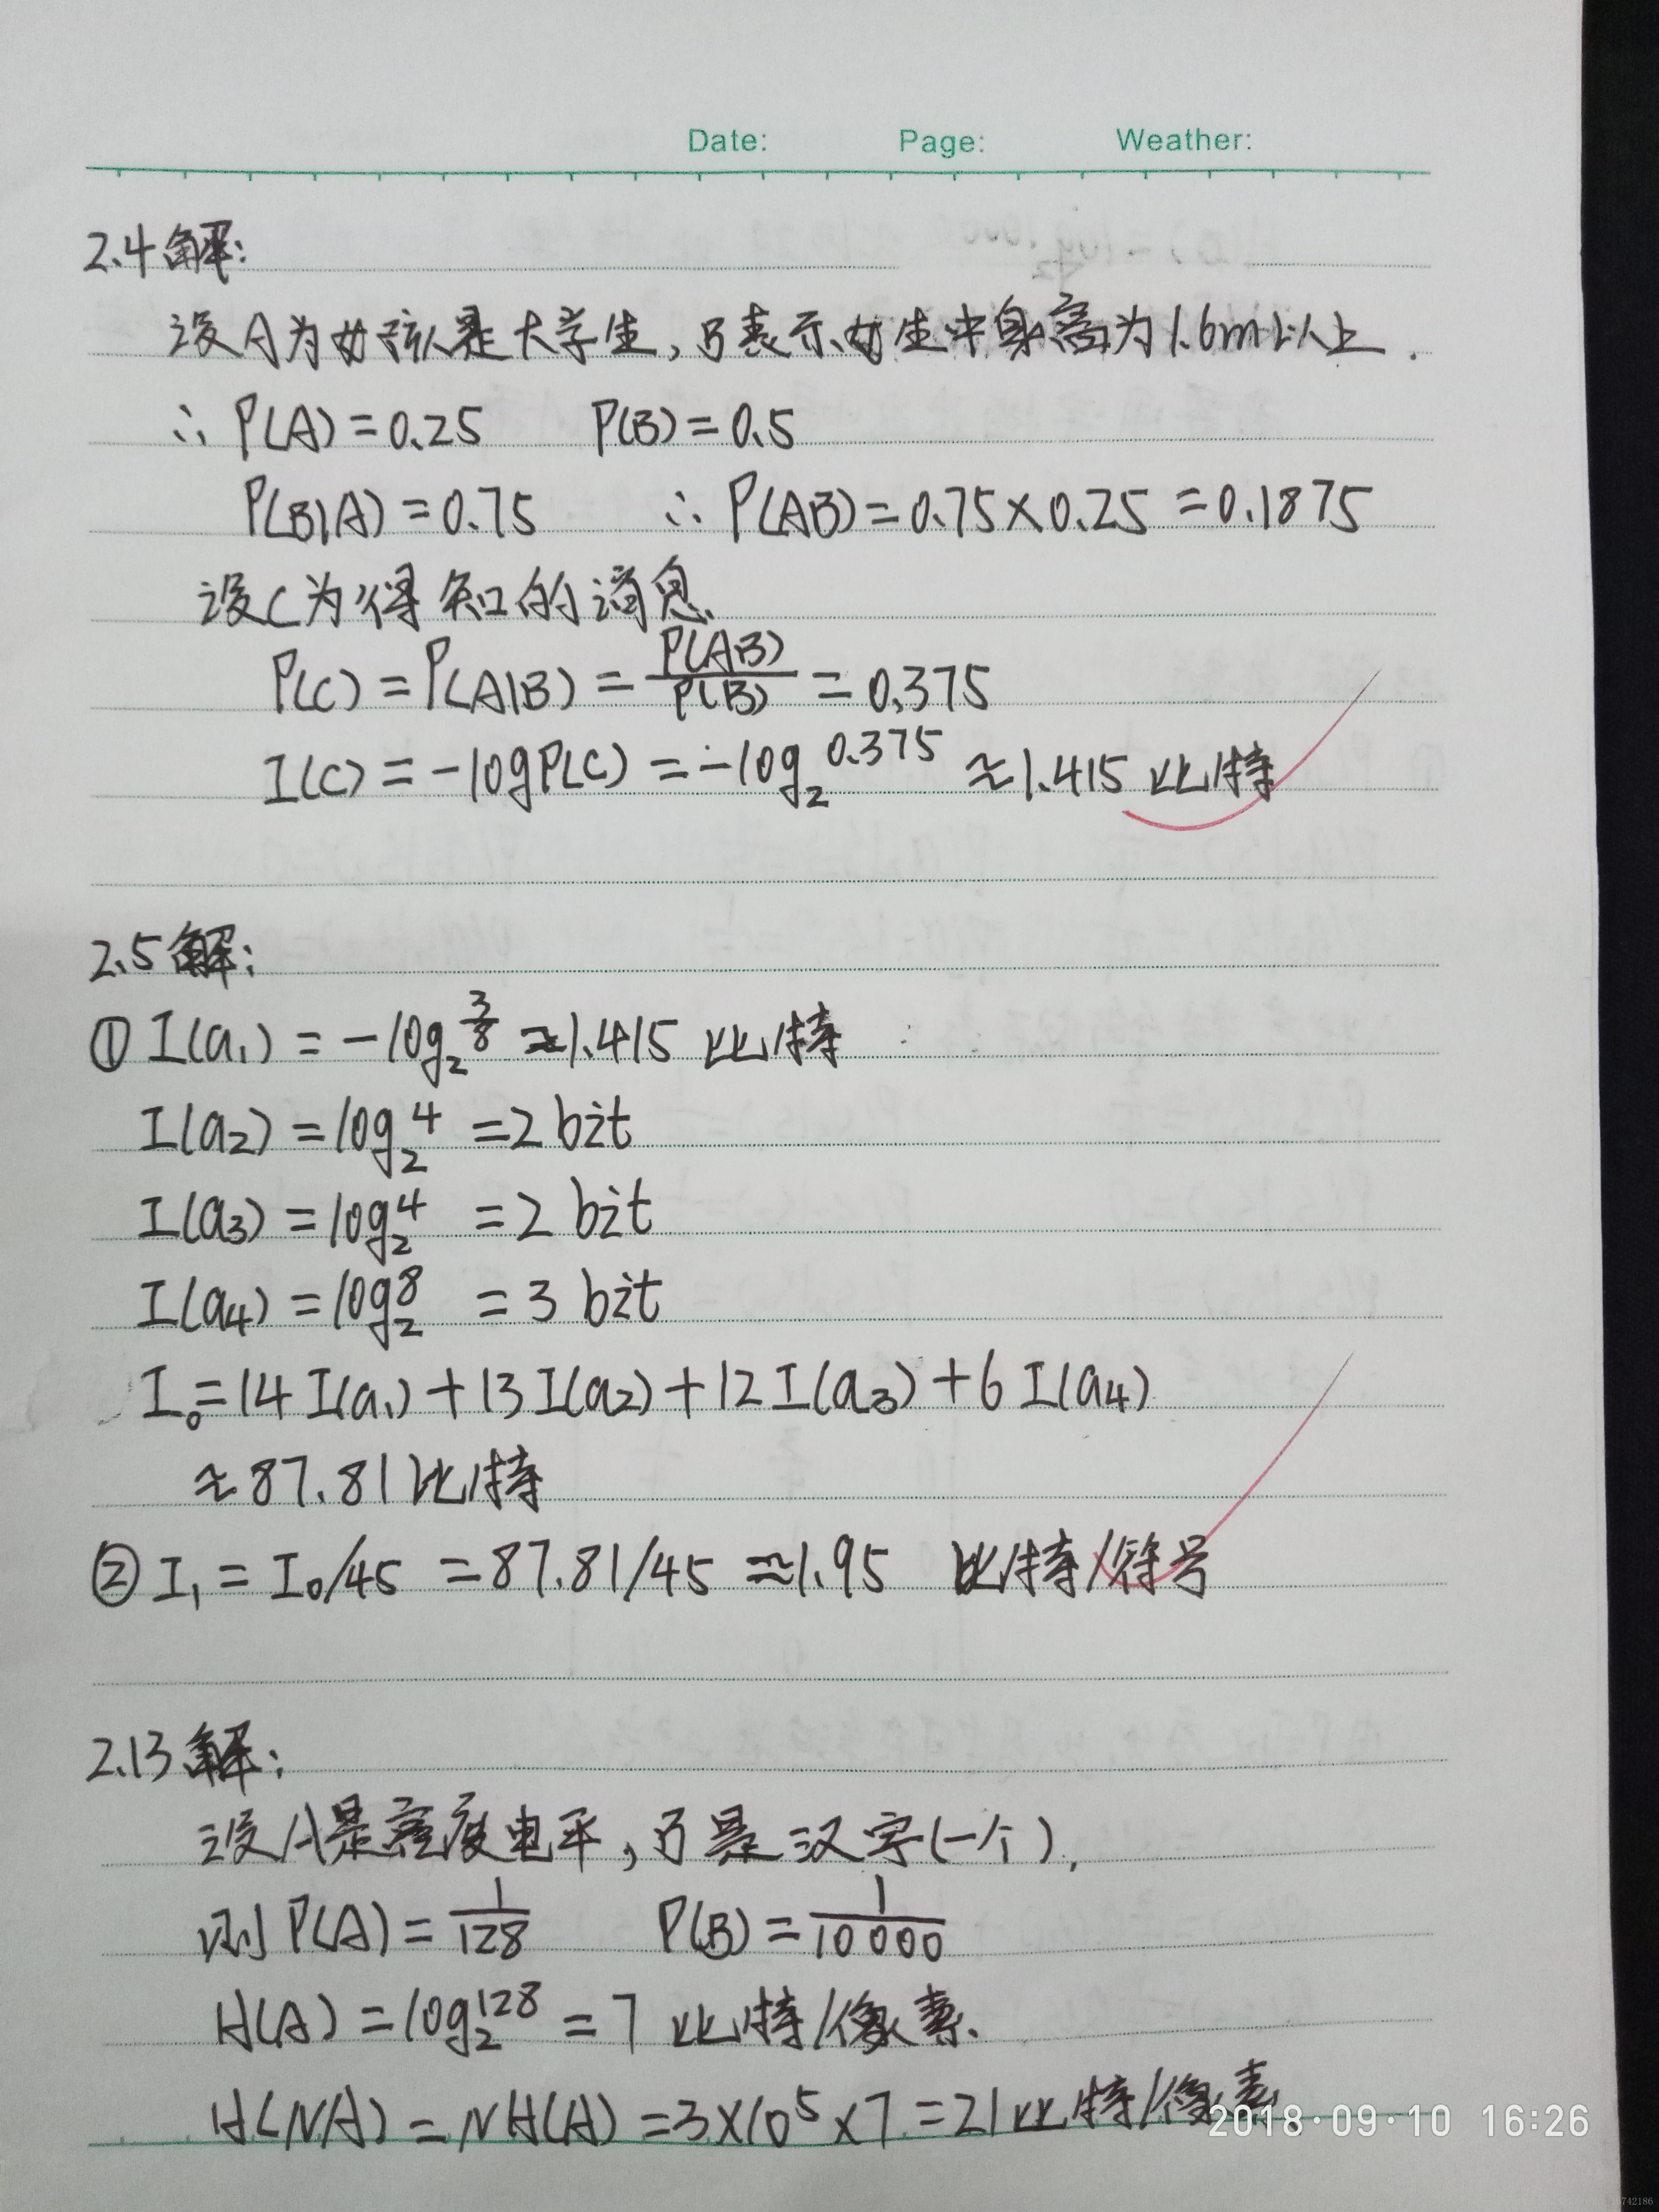 Date: Page: Weather:
2.4解:
设A为女孩是大学生,B表示女生中身高为1.6m以上.
∴ P(A)=0.25 P(B)=0.5
P(B|A)=0.75 ∴ P(AB)=0.75×0.25=0.1875
设C为得知的消息
P(C)=P(A|B)=P(AB)/P(B)=0.375
I(C)=-logP(C)=-log₂0.375≈1.415比特
2.5解:
① I(a₁)=-log₂3/8≈1.415比特
I(a₂)=log₂4=2bit
I(a₃)=log₂4=2bit
I(a₄)=log₂8=3bit
I₀=14I(a₁)+13I(a₂)+12I(a₃)+6I(a₄)
≈87.81比特
② I₁=I₀/45=87.81/45≈1.95 比特/符号
2.13解:
设A是亮度电平,B是汉字(一个),
则P(A)=1/128 P(B)=1/10000
H(A)=log₂128=7比特/像素.
H(NA)=NH(A)=3×10⁵×7=21比特/像素
2018·09·10 16:26